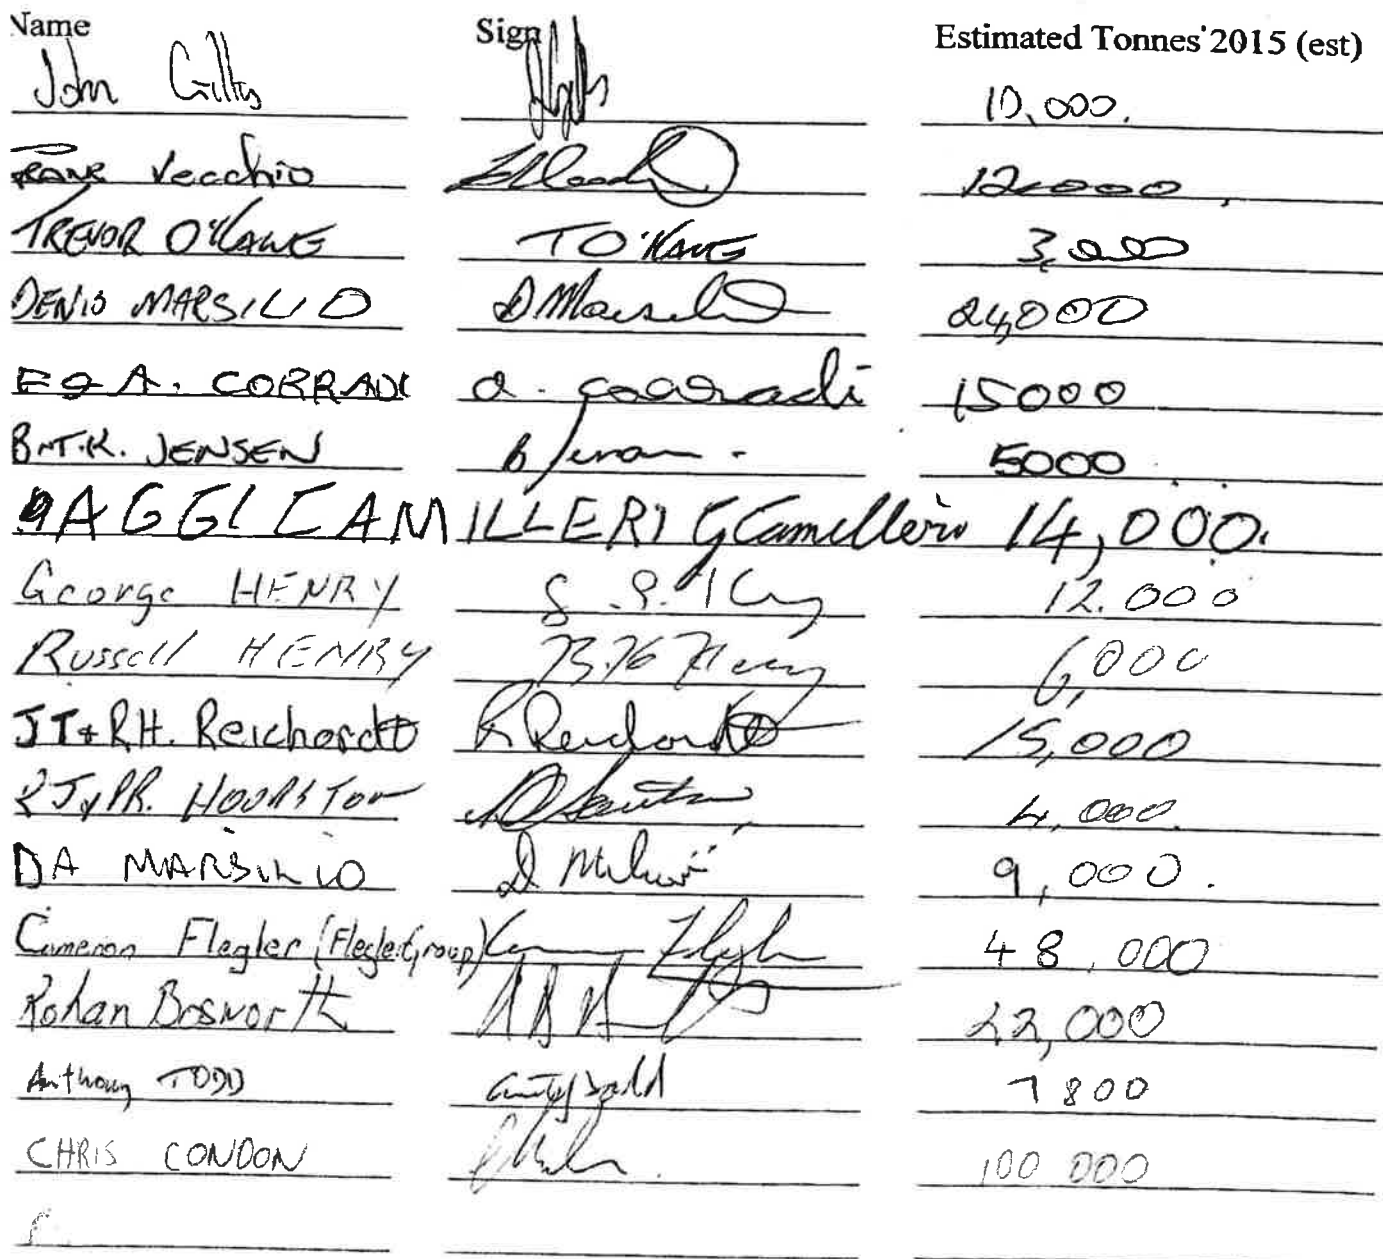 Name Sign Estimated Tonnes 2015 (est)
John Gillies 10,000.
Frank Vecchio 12000
TREVOR O'KANE T O'KANE 3,000
DENIS MARSILIO D Marsilio 24,000
E & A. CORRADI a. corradi 15000
B & T.K. JENSEN B Jensen 5000
AGGI CAMILLERI G Camilleri 14,000.
George HENRY 12.000
Russell HENRY 6,000
JT & RH. Reichardt R Reichardt 15,000
4,000.
DA MARSILIO 9,000.
Cameron Flegler (Flegler Group) 48,000
Rohan Bosworth 22,000
Anthony TODD 7800
CHRIS CONDON 100 000